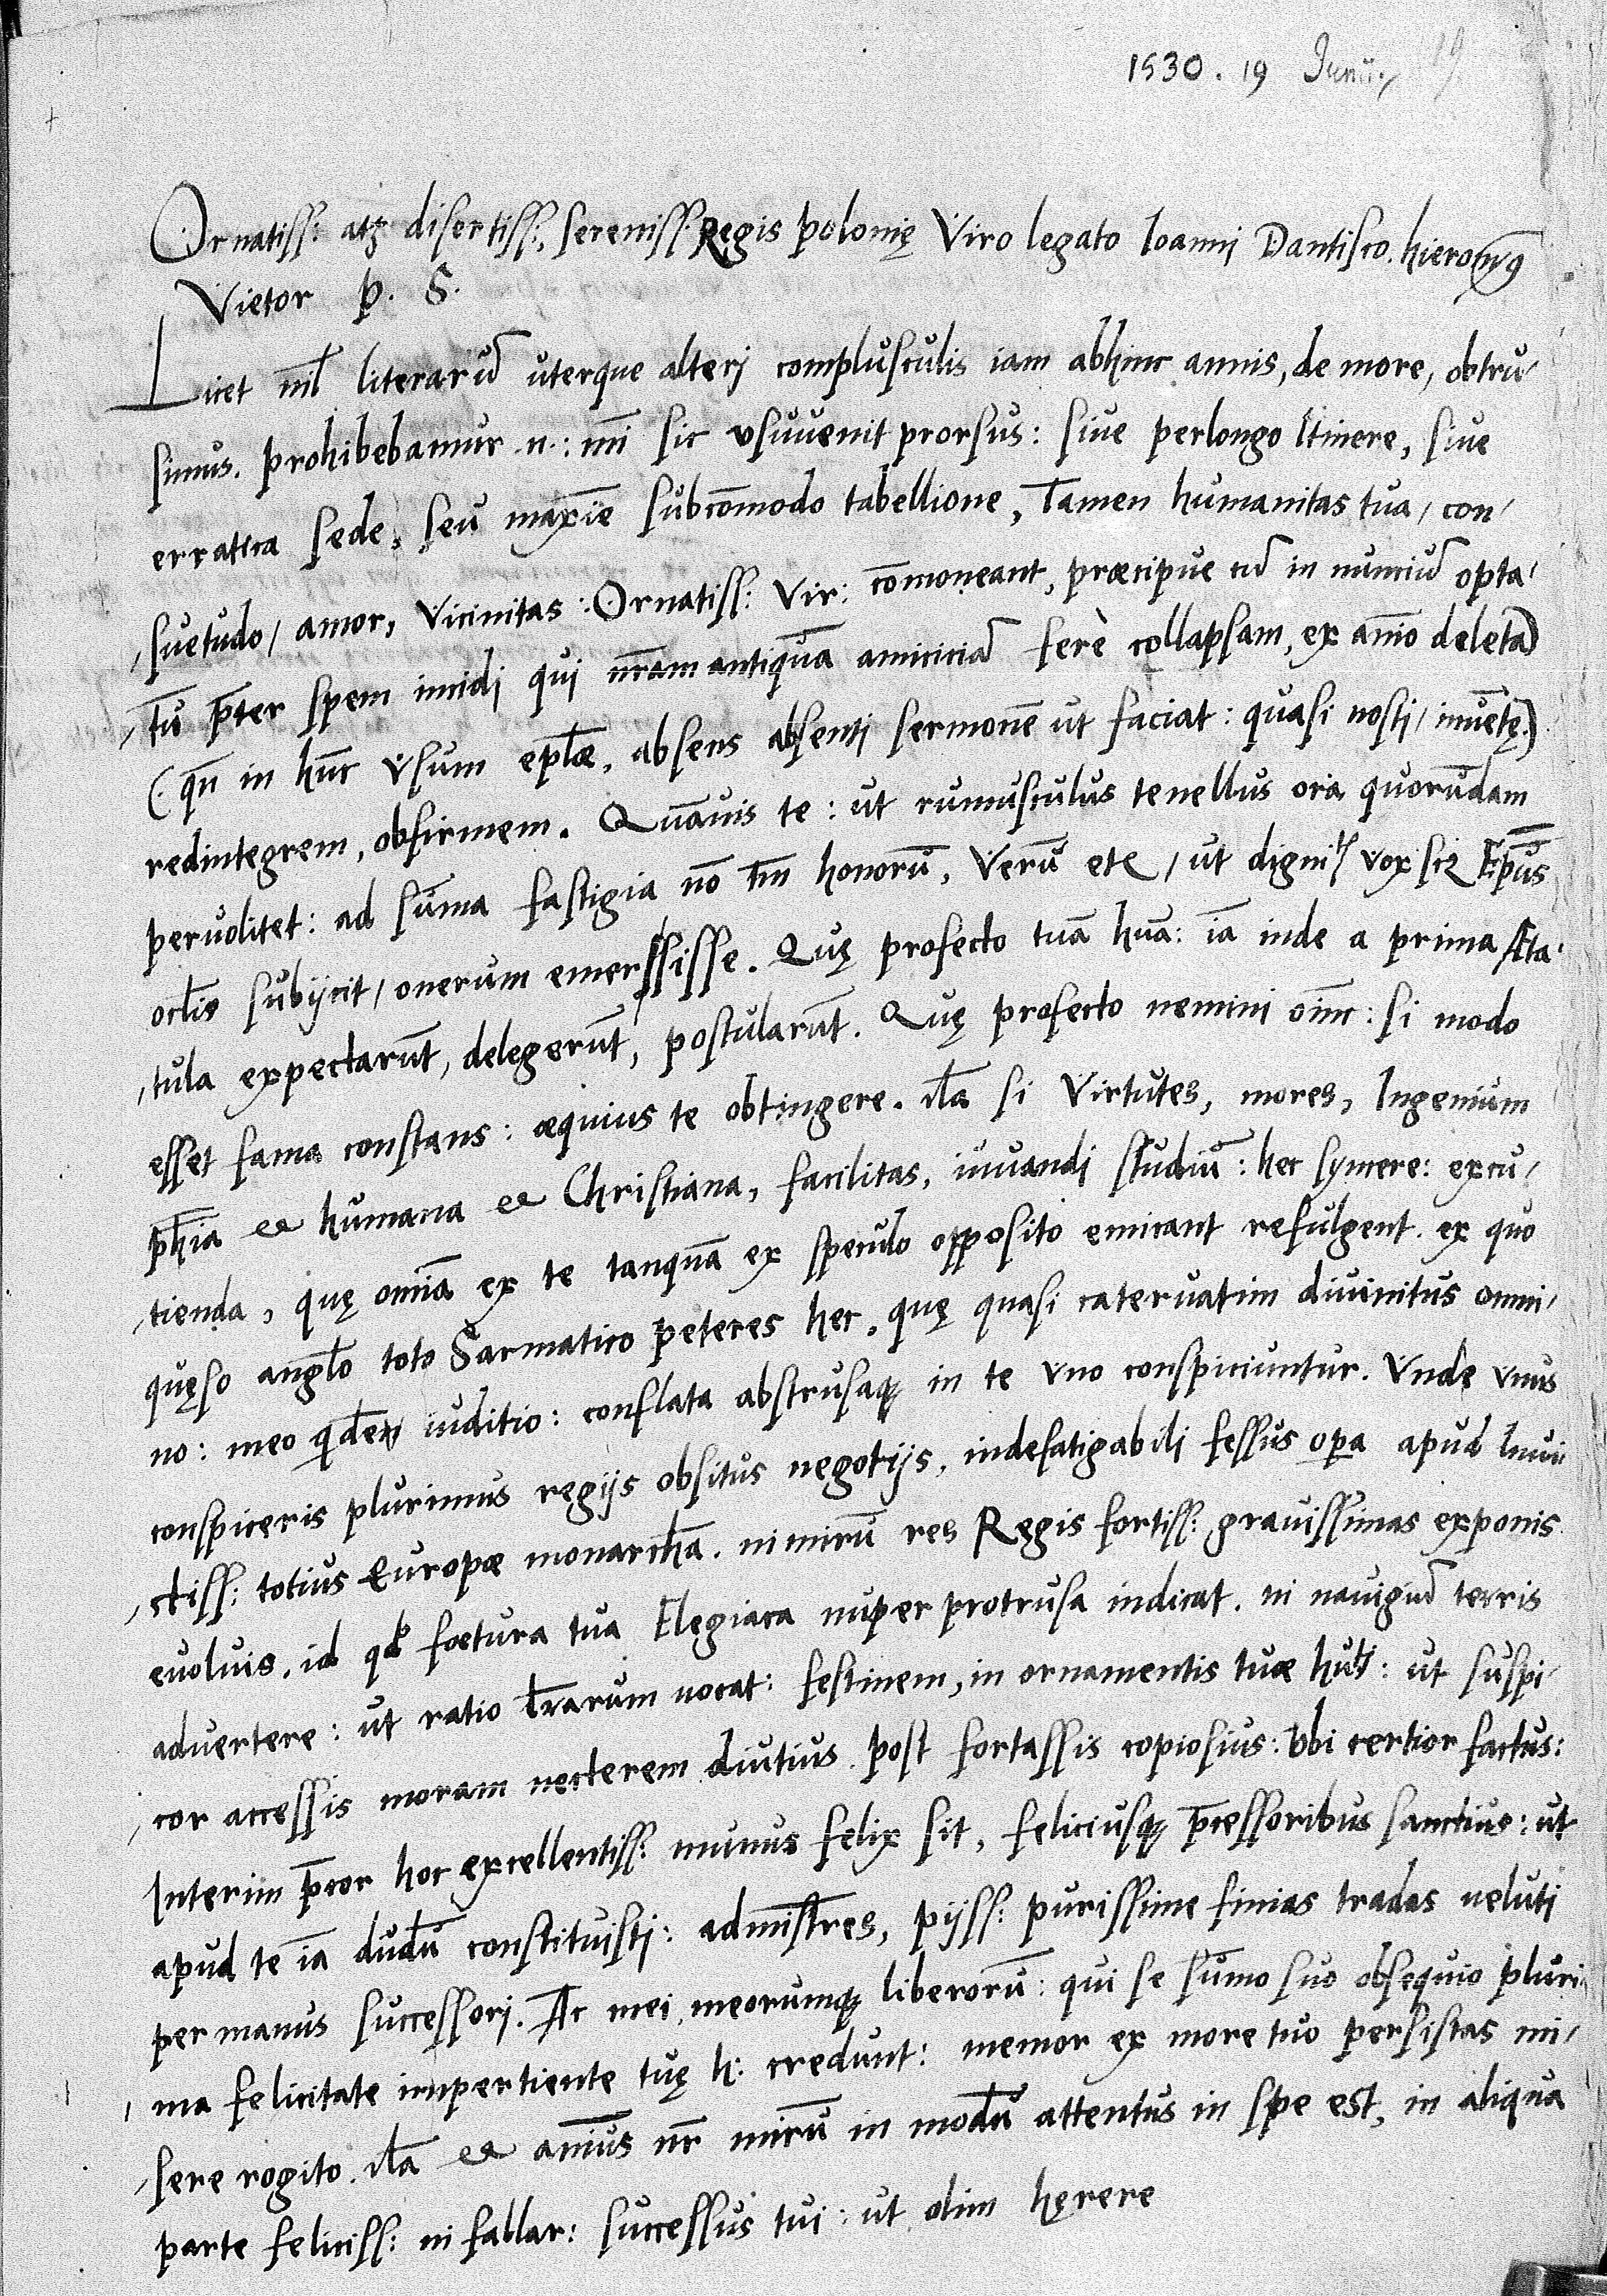 1530. 19 Junii.
Ornatiss: atq; disertiss:, sereniss: Regis polonię Viro legato Ioannj Dantisco. hieronym9
Vietor p. S.
Licet nil̄ literarū uterque alterj complusculis iam abhinc annis, de more, obtru-
simus. prohibebamur .n.: mi sic vsuuenit prorsus: siue perlongo Itinere, siue
erratica sede, seu maxīe subcōmodo tabellione, Tamen humanitas tua, con-
suetudo, amor, Vicinitas: Ornatiss: Vir: cōmoneant, præcipue cū in nunciū opta-
tū p̄ter spem incidi quj nr̄am antiquā amiciciā ferè collapsam, ex aīo deletā
(qn̄ in hūc vsum epl̄æ, absens absentj sermonē ut faciat: quasi nostj, inuētę.)
redintegrem, obfirmem. Quāuis te: ut rumusculus tenellus ora quorūdam
peruolitet: ad sūma fastigia nō tm̄ honorū, Verū etc, ut dignit̄ vox scz Ep̄us
ocl̄is subijcit, onerum emersisse. Quę profecto tuā huā: iā inde a prima Æta-
tula expectarūt, delegerūt, postularūt. Quę profecto nemini oīno: si modo
esset fama constans: æquius te obtingere. Nā si Virtutes, mores, Ingenium
ph̄ia et humana et Christiana, facilitas, iuuandj studiū: hec syncere: excu-
tienda, quę omīa ex te tanquā ex speculo opposito emicant refulgent. ex quo
quęso angl̄o toto Sarmatico peteres hec, quę quasi cateruatim diuinitus omni-
no: meo qdem iuditio: conflata abstrusaq; in te vno conspiciuntur. Vnde vnus
conspiceris plurimus regijs obsitus negotijs, indefatigabilj fessus opa apud Inui-
ctiss: totius Europæ monarchā. nimirū res Regis fortiss: grauissimas exponis
euoluis, id qd fœtura tua Elegiaca nuper protrusa indicat. ni nauigiū terris
aduertere: ut ratio lr̄arum uocat: festinem, in ornamentis tuæ hu: ut suspi-
cor accessis moram necterem diutius. post fortassis copiosius: Vbi certior factus:
Interim p̄cor hoc excellentiss: munus felix sit, feliciusq; p̄cessoribus sanctius: ut
apud te iā dudū constituistj: administres, pijss: purissime finias tradas ueluti
per manus successorj. Ac mei, meorumq; liberorū: qui se sūmo suo obsequio pluri-
ma felicitate impertiente tuę h: credunt: memor ex more tuo persistas mi-
sere rogito. Nā et anīus nr̄ mirū in modū attentus in spe est, in aliqua
parte feliciss: ni fallar: successus tui: ut olim hęrere